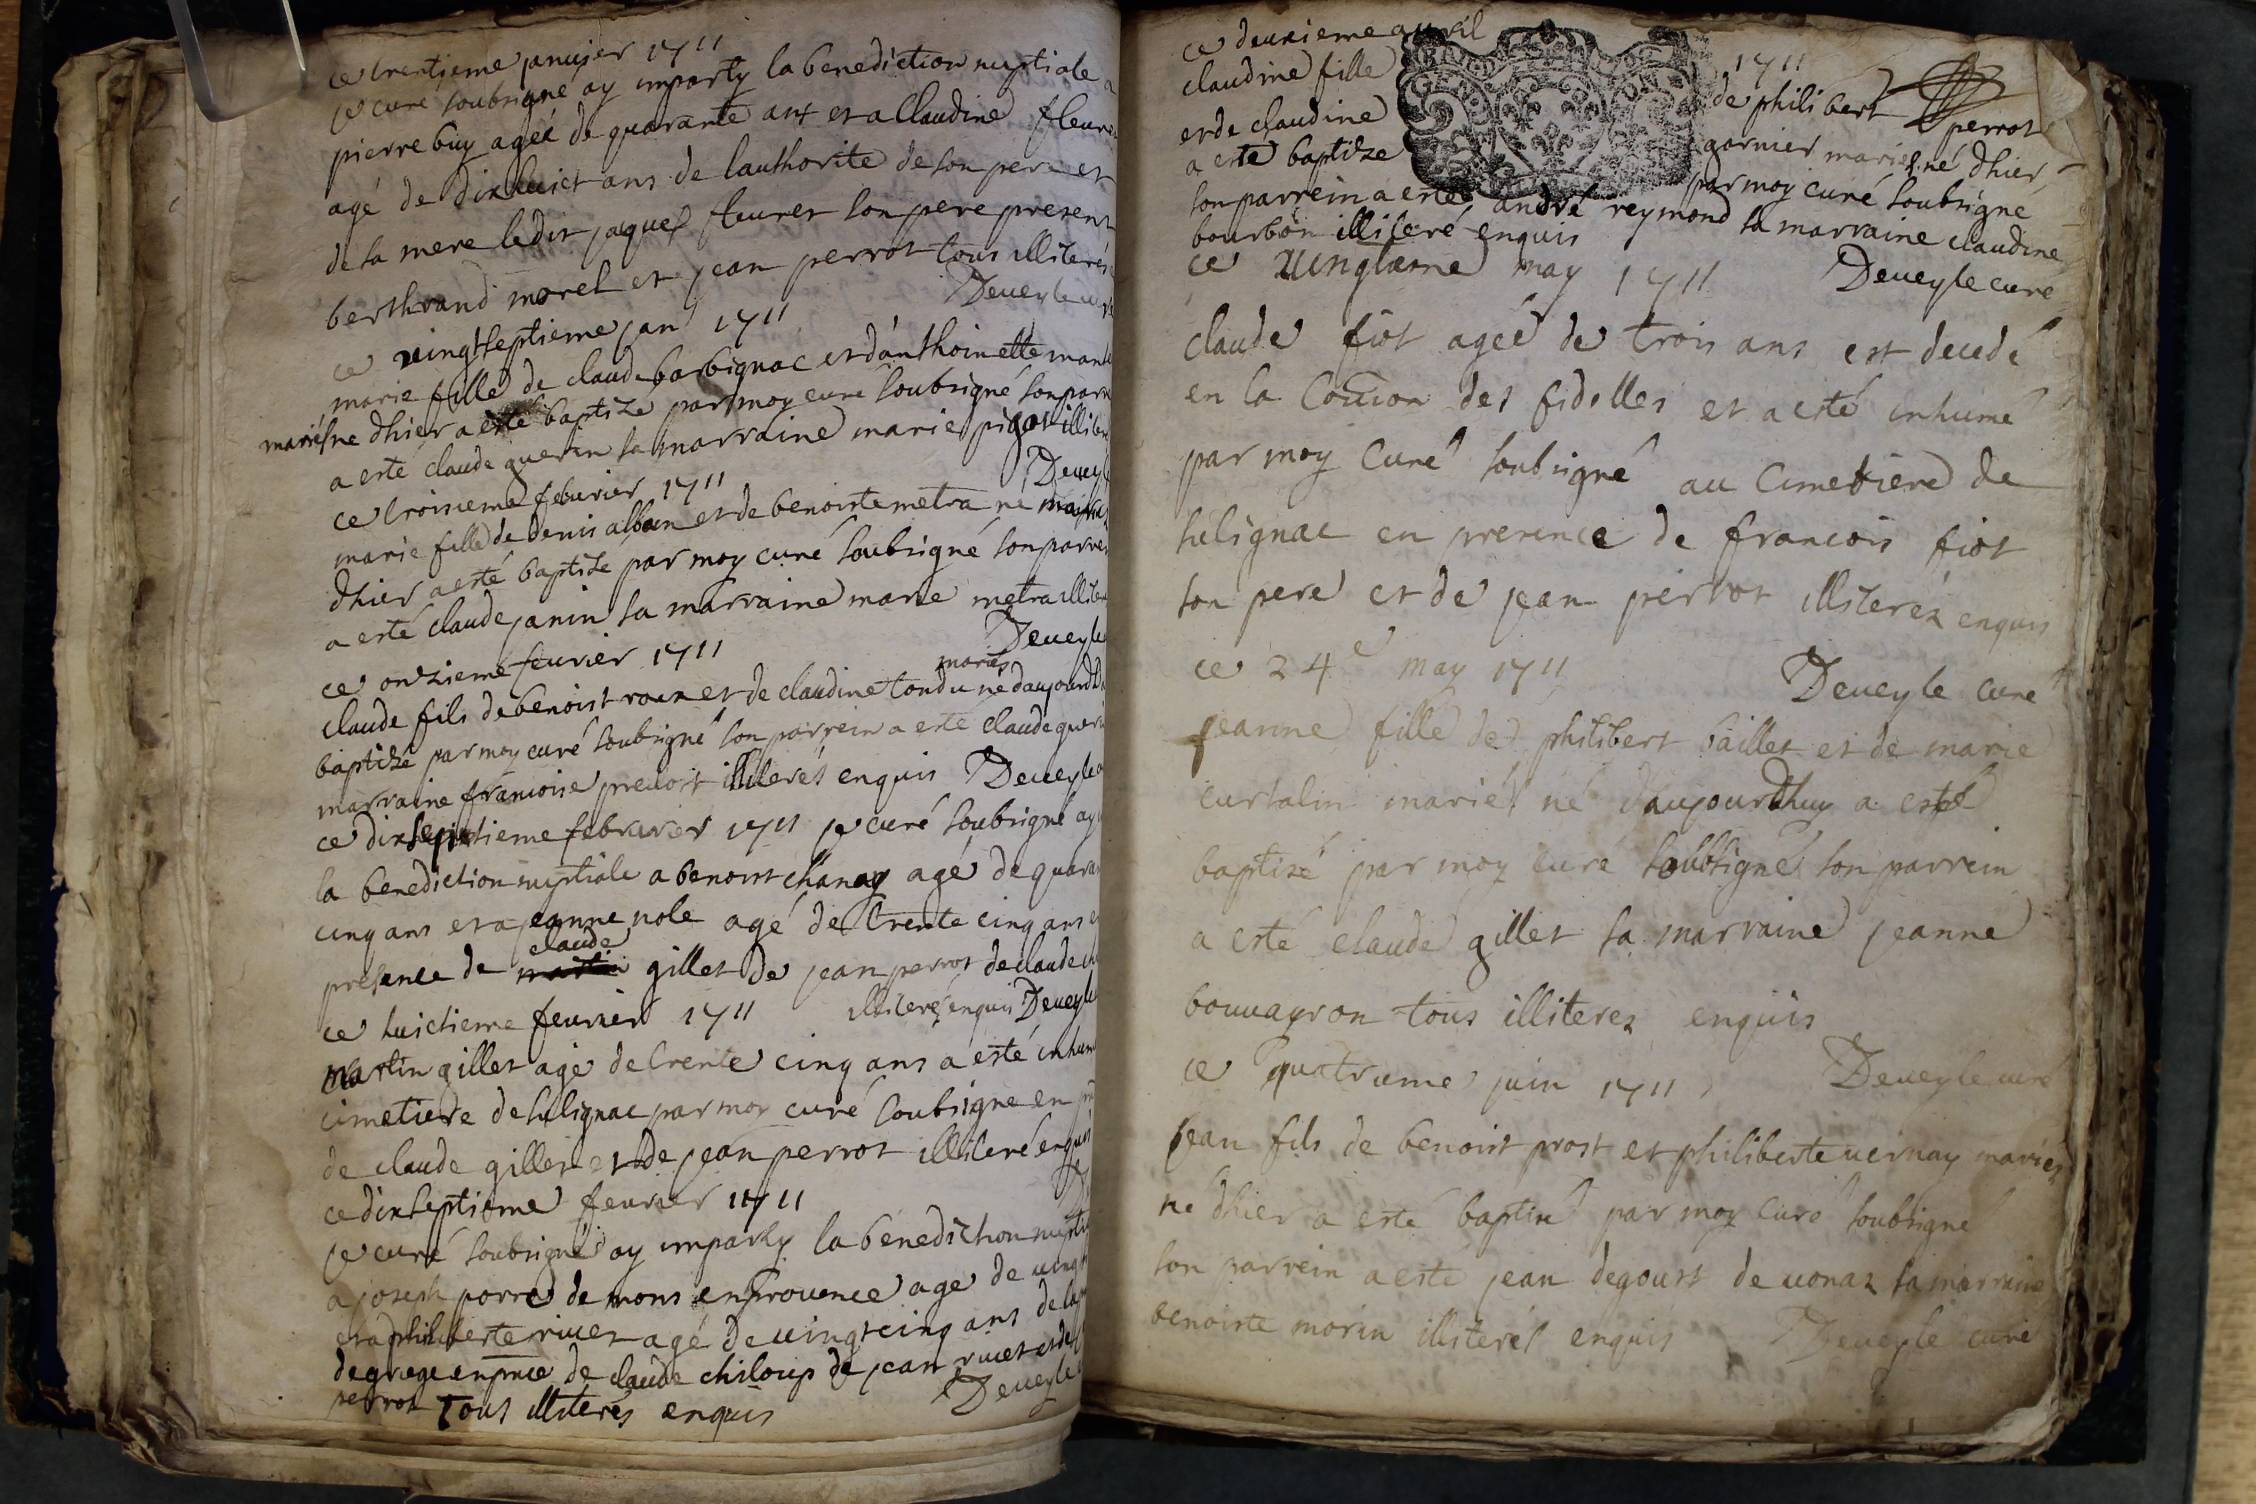 ce trentieme janvier 1711
je curé soubsigné ay imparty la benediction nuptiale a
pierre buy ageé de quarante ans et a Claudine fleure
agé de dixhuict ans de lauthorite de son pere et
de sa mere ledit jaques fleuret son pere present
berthrand morel et jean perrot tous illiterés
Deueyle curé
ce uingtseptieme jan 1711
marie fille de claude barbignac et danthoinette
mariés ne dhier a esté baptizé par moy curé soubsigné son parr
a esté claude guerin sa marraine marie pigot illite
Deueyle
ce troisieme feburier 1711
marie fille de denis alban et de benoiste metra né mariés
dhier a esté baptizé par moy curé soubsigné son parre
a esté claude janin sa marraine marie metra illite
Deueyle
ce onzieme feurier 1711
mariés
claude fils de benoist roux et de claudine tondu né daujourdh
baptizé par moy curé soubsigné son parrein a esté claude gueri
marraine francoise preuost illiterés enquis Deueyle
ce dixseptieme feburier 1711 je curé soubsigné ay
la benediction nuptiale a benoist chanay agé de quara
cinq ans et a jeanne nole agé de trente cinq ans e
claude
presence de gillet de jean perrot de claude
ce huictieme feurier 1711 illiterés enquis Deueyle
martin gillet agé de trente cinq ans a esté inhum
cimetiere de sulignac par moy curé soubsigné en
de claude gillet et de jean perrot illiteré enquis
ce dixseptieme feurier 1711
je curé soubsigné ay imparty la benediction nupti
a joseph porre de mons en Prouence agé de uingt
et a philiberte riuet agé de uingt cinq ans de la
de griege en pnce de claude chiloup de jean riuet et de
perrot Tous illiterés enquis
Deueyle
ce deuxieme auril 1711
claudine fille de philibert perrot
et de claudine garnier mariés né dhier
a esté baptizé par moy curé soubsigné
son parrein a esté andré reymond sa marraine claudine
bourbon illiteré enquis
Deueyle curé
ce uingtieme may 1711
claude fiot ageé de trois ans est decedé
en la Coũion des fidelles et a esté inhumé
par moy Curé soubsigné au Cimetiere de
sulignac en presence de francois fiot
son pere et de jean perrot illiteréz enquis
ce 24e may 1711
Deueyle curé
jeanne fille de philibert baillet et de marie
curtalin mariés né daujourdhuy a esté
baptizé par moy curé soubsigné son parrein
a esté claude gillet sa marraine jeanne
bouuayron tous illiterez enquis
ce quatrieme juin 1711
Deueyle curé
jean fils de benoist prost et philiberte uernay mariés
né dhier a esté baptizé par moy Curé soubsigné
son parrein a esté jean degout de uonaz sa marraine
benoiste morin illiterés enquis Deueyle curé